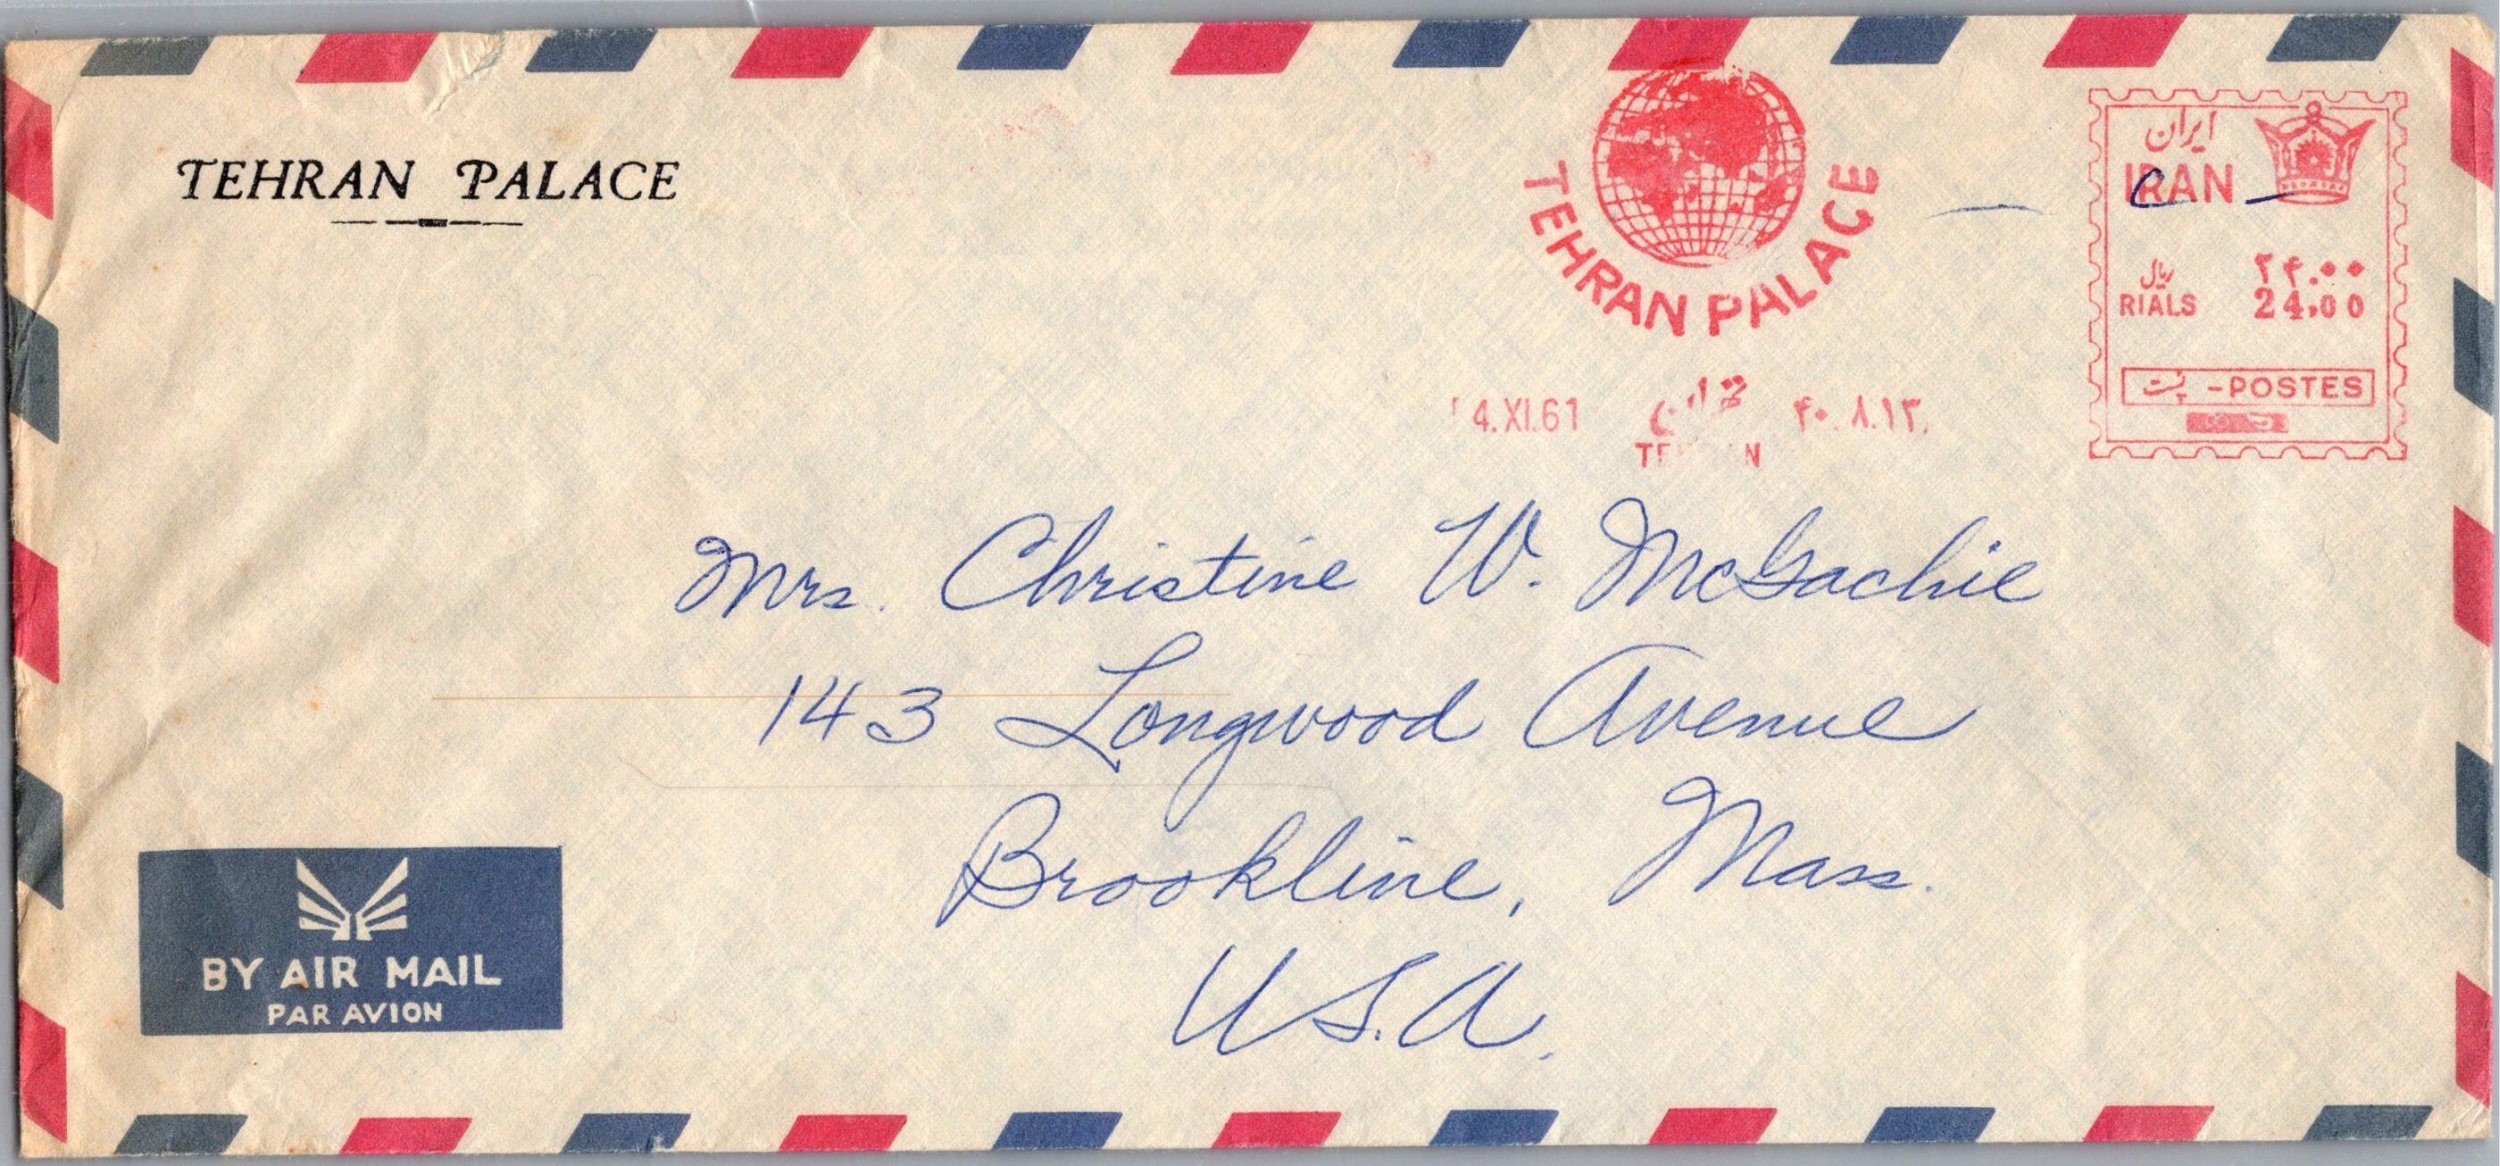 TEHRAN PALACE
TEHRAN PALACE
ایران
IRAN
ریال ۲۴.۰۰
RIALS 24,00
پست - POSTES
4.XI.61 تهران ۴۰.۸.۱۳.
TEHRAN
Mrs. Christine W. McGachie
143 Longwood Avenue
Brookline, Mass.
U.S.A.
BY AIR MAIL
PAR AVION